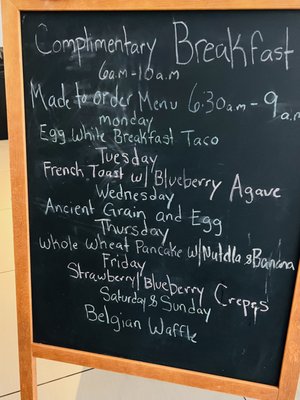 Complimentary Breakfast
6am-10a.m
Made to order Menu 6:30am-9a.m
monday
Egg White Breakfast Taco
Tuesday
French Toast w/ Blueberry Agave
Wednesday
Ancient Grain and Egg
Thursday
Whole Wheat Pancake w/Nutella & Banana
Friday
Strawberry/Blueberry Crepes
Saturday & Sunday
Belgian Waffle